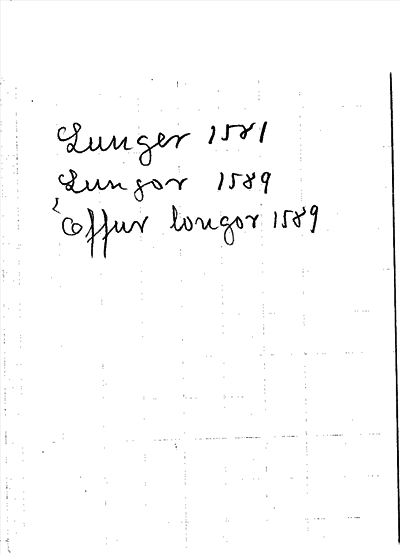 Lunger 1581
Lungor 1589
Offur longor 1589